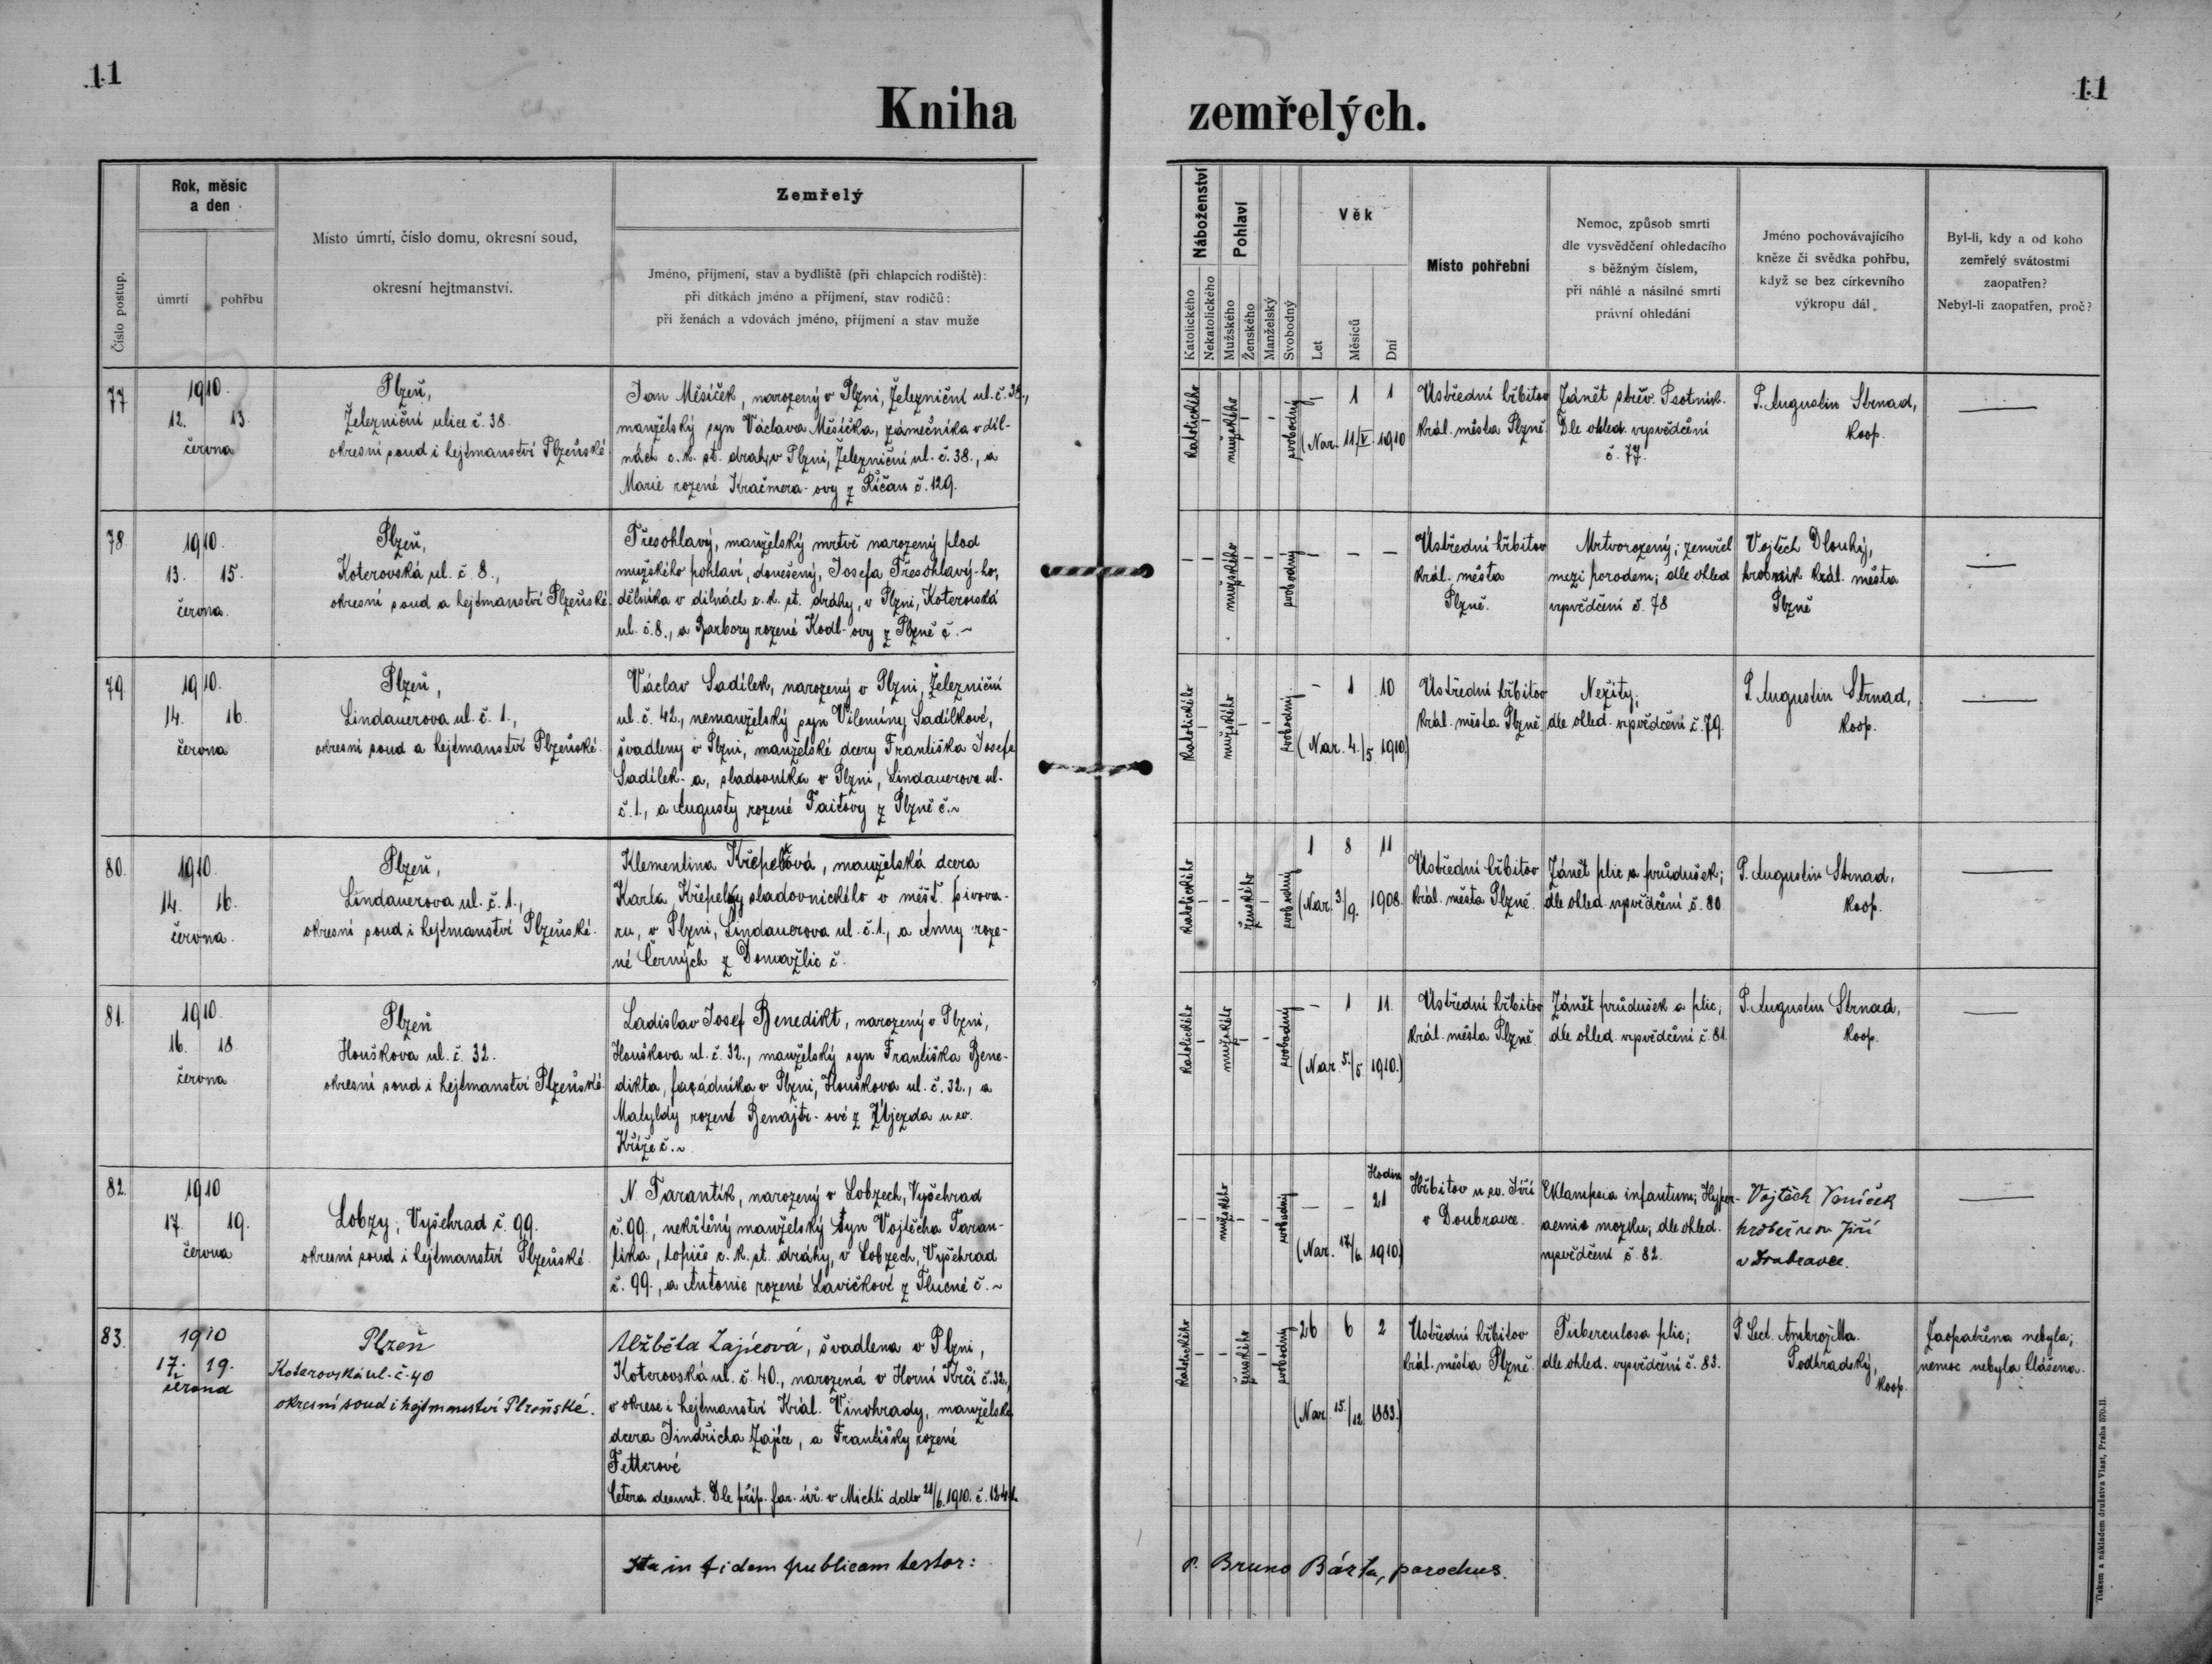 11
11
Kniha zemřelých.
Číslo postup.
Rok, měsíc
a den
úmrtí
pohřbu
Místo úmrtí, číslo domu, okresní soud,
okresní hejtmanství.
Zemřelý
Jméno, příjmení, stav a bydliště (při chlapcích rodiště):
při dítkách jméno a příjmení, stav rodičů:
při ženách a vdovách jméno, příjmení a stav muže
Náboženství
Katolického
Nekatolického
Pohlaví
Mužského
Ženského
Manželský
Svobodný
Věk
Let
Měsíců
Dní
Místo pohřební
Nemoc, způsob smrti
dle vysvědčení ohledacího
s běžným číslem,
při náhlé a násilné smrti
právní ohledání
Jméno pochovávajícího
kněze či svědka pohřbu,
když se bez církevního
výkropu dál.
Byl-li, kdy a od koho
zemřelý svátostmi
zaopatřen?
Nebyl-li zaopatřen, proč?
77
1910.
12. 13.
června
Plzeň,
Železniční ulice č. 38.
okresní soud i hejtmanství Plzeňské
Jan Měsíček, narozený v Plzni, Železniční ul. č. 38.,
manželský syn Václava Měsíčka, zámečníka v díl-
nách c. k. st. drah, v Plzni, Železniční ul. č. 38., a
Marie rozené Kračmera-ovy z Říčan č. 129.
Katolického
-
mužského
-
-
svobodný
- 1 1
(Nar. 11/V. 1910
Ústřední hřbitov
král. města Plzně.
Zánět střev. Psotník.
Dle ohled. vysvědčení
č. 77.
P. Augustin Strnad,
koop.
—
78.
1910.
13. 15.
června.
Plzeň,
Koterovská ul. č. 8.,
okresní soud a hejtmanství Plzeňské.
Třesohlavý, manželský mrtvě narozený plod
mužského pohlaví, donešený, Josefa Třesohlavý-ho,
dělníka v dílnách c. k. st. dráhy, v Plzni, Koterovská
ul. č. 8., a Barbory rozené Kodl-ovy z Plzně č. ~
- - mužského - - svobodný
- - -
Ústřední hřbitov
král. města
Plzně.
Mrtvorozený; zemřel
mezi porodem; dle ohled
vysvědčení č. 78
Vojtěch Dlouhý,
hrobník král. města
Plzně
—
79.
1910.
14. 16.
června
Plzeň,
Lindauerova ul. č. 1.,
okresní soud a hejtmanství Plzeňské.
Václav Sadílek, narozený v Plzni, Železniční
ul. č. 42., nemanželský syn Vilemíny Sadílkové,
švadleny v Plzni, manželské dcery Františka Josefa
Sadílek-a, sladovníka v Plzni, Lindauerova ul.
č. 1., a Augusty rozené Faitovy z Plzně č. ~
Katolického - mužského - - svobodný
- 1 10
(Nar. 4./5 1910)
Ústřední hřbitov
král. města Plzně.
Nežity;
dle ohled. vysvědčení č. 79.
P. Augustin Strnad,
koop.
—
80.
1910.
14. 16.
června.
Plzeň,
Lindauerova ul. č. 1.,
okresní soud i hejtmanství Plzeňské.
Klementina Křepelková, manželská dcera
Karla Křepelky sladovnického v měšť. pivova-
ru, v Plzni, Lindauerova ul. č. 1., a Anny roze-
né Černých z Domažlic č.
Katolického - - ženského - svobodný
1 8 11
(Nar. 3/9. 1908.
Ústřední hřbitov
král. města Plzně.
Zánět plic a průdušek;
dle ohled. vysvědčení č. 80.
P. Augustin Strnad,
koop.
—
81.
1910.
16. 18.
června
Plzeň
Houškova ul. č. 32.
okresní soud i hejtmanství Plzeňské
Ladislav Josef Benedikt, narozený v Plzni,
Houškova ul. č. 32., manželský syn Františka Bene-
dikta, façádníka v Plzni, Houškova ul. č. 32., a
Matyldy rozené Benajtr-ové z Újezda u sv.
Kříže č. ~
Katolického - mužského - - svobodný
- 1 11.
(Nar. 5./5 1910.)
Ústřední hřbitov
král. města Plzně.
Zánět průdušek a plic;
dle ohled. vysvědčení č. 81.
P. Augustin Strnad,
koop.
—
82.
1910
17. 19.
června
Lobzy, Vyšehrad č. 99.
okresní soud i hejtmanství Plzeňské.
N. Tarantík, narozený v Lobzech, Vyšehrad
č. 99., nekřtěný manželský syn Vojtěcha Taran-
tíka, topiče c. k. st. dráhy, v Lobzech, Vyšehrad
č. 99., a Antonie rozené Lavičkové z Tlucné č. ~
- - mužského - - svobodný
- - Hodin 21
(Nar. 17/6. 1910)
Hřbitov u sv. Jiří
v Doubravce.
Eklampsia infantum; Hyper-
aemie mozku; dle ohled.
vysvědčení č. 82.
Vojtěch Vaníček
hrobař u sv Jiří
v Doubravce.
—
83.
1910
17. 19.
června
Plzeň
Koterovská ul. č. 40
okresní soud i hejtmanství Plzeňské.
Alžběta Zajícová, švadlena v Plzni,
Koterovská ul. č. 40., narozená v Horní Krči č. 32.,
v okrese i hejtmanství Král. Vinohrady, manželská
dcera Jindřicha Zajíce, a Františky rozené
Fetterové
Cetera desunt. Dle příp. far. úř. v Michli ddto 21/6. 1910. č. 1241.
Katolického - - ženského - svobodný
26 6 2
(Nar. 15./12 1883.)
Ústřední hřbitov
král. města Plzně.
Tuberculosa plic;
dle ohled. vysvědčení č. 83.
P. Lect. Ambrož Ma.
Podhradský,
koop.
Zaopatřena nebyla;
nemoc nebyla hlášena.
Ita in fidem publicam testor:
P. Bruno Bárta, parochus.
Tiskem a nákladem družstva Vlast, Praha 570-II.